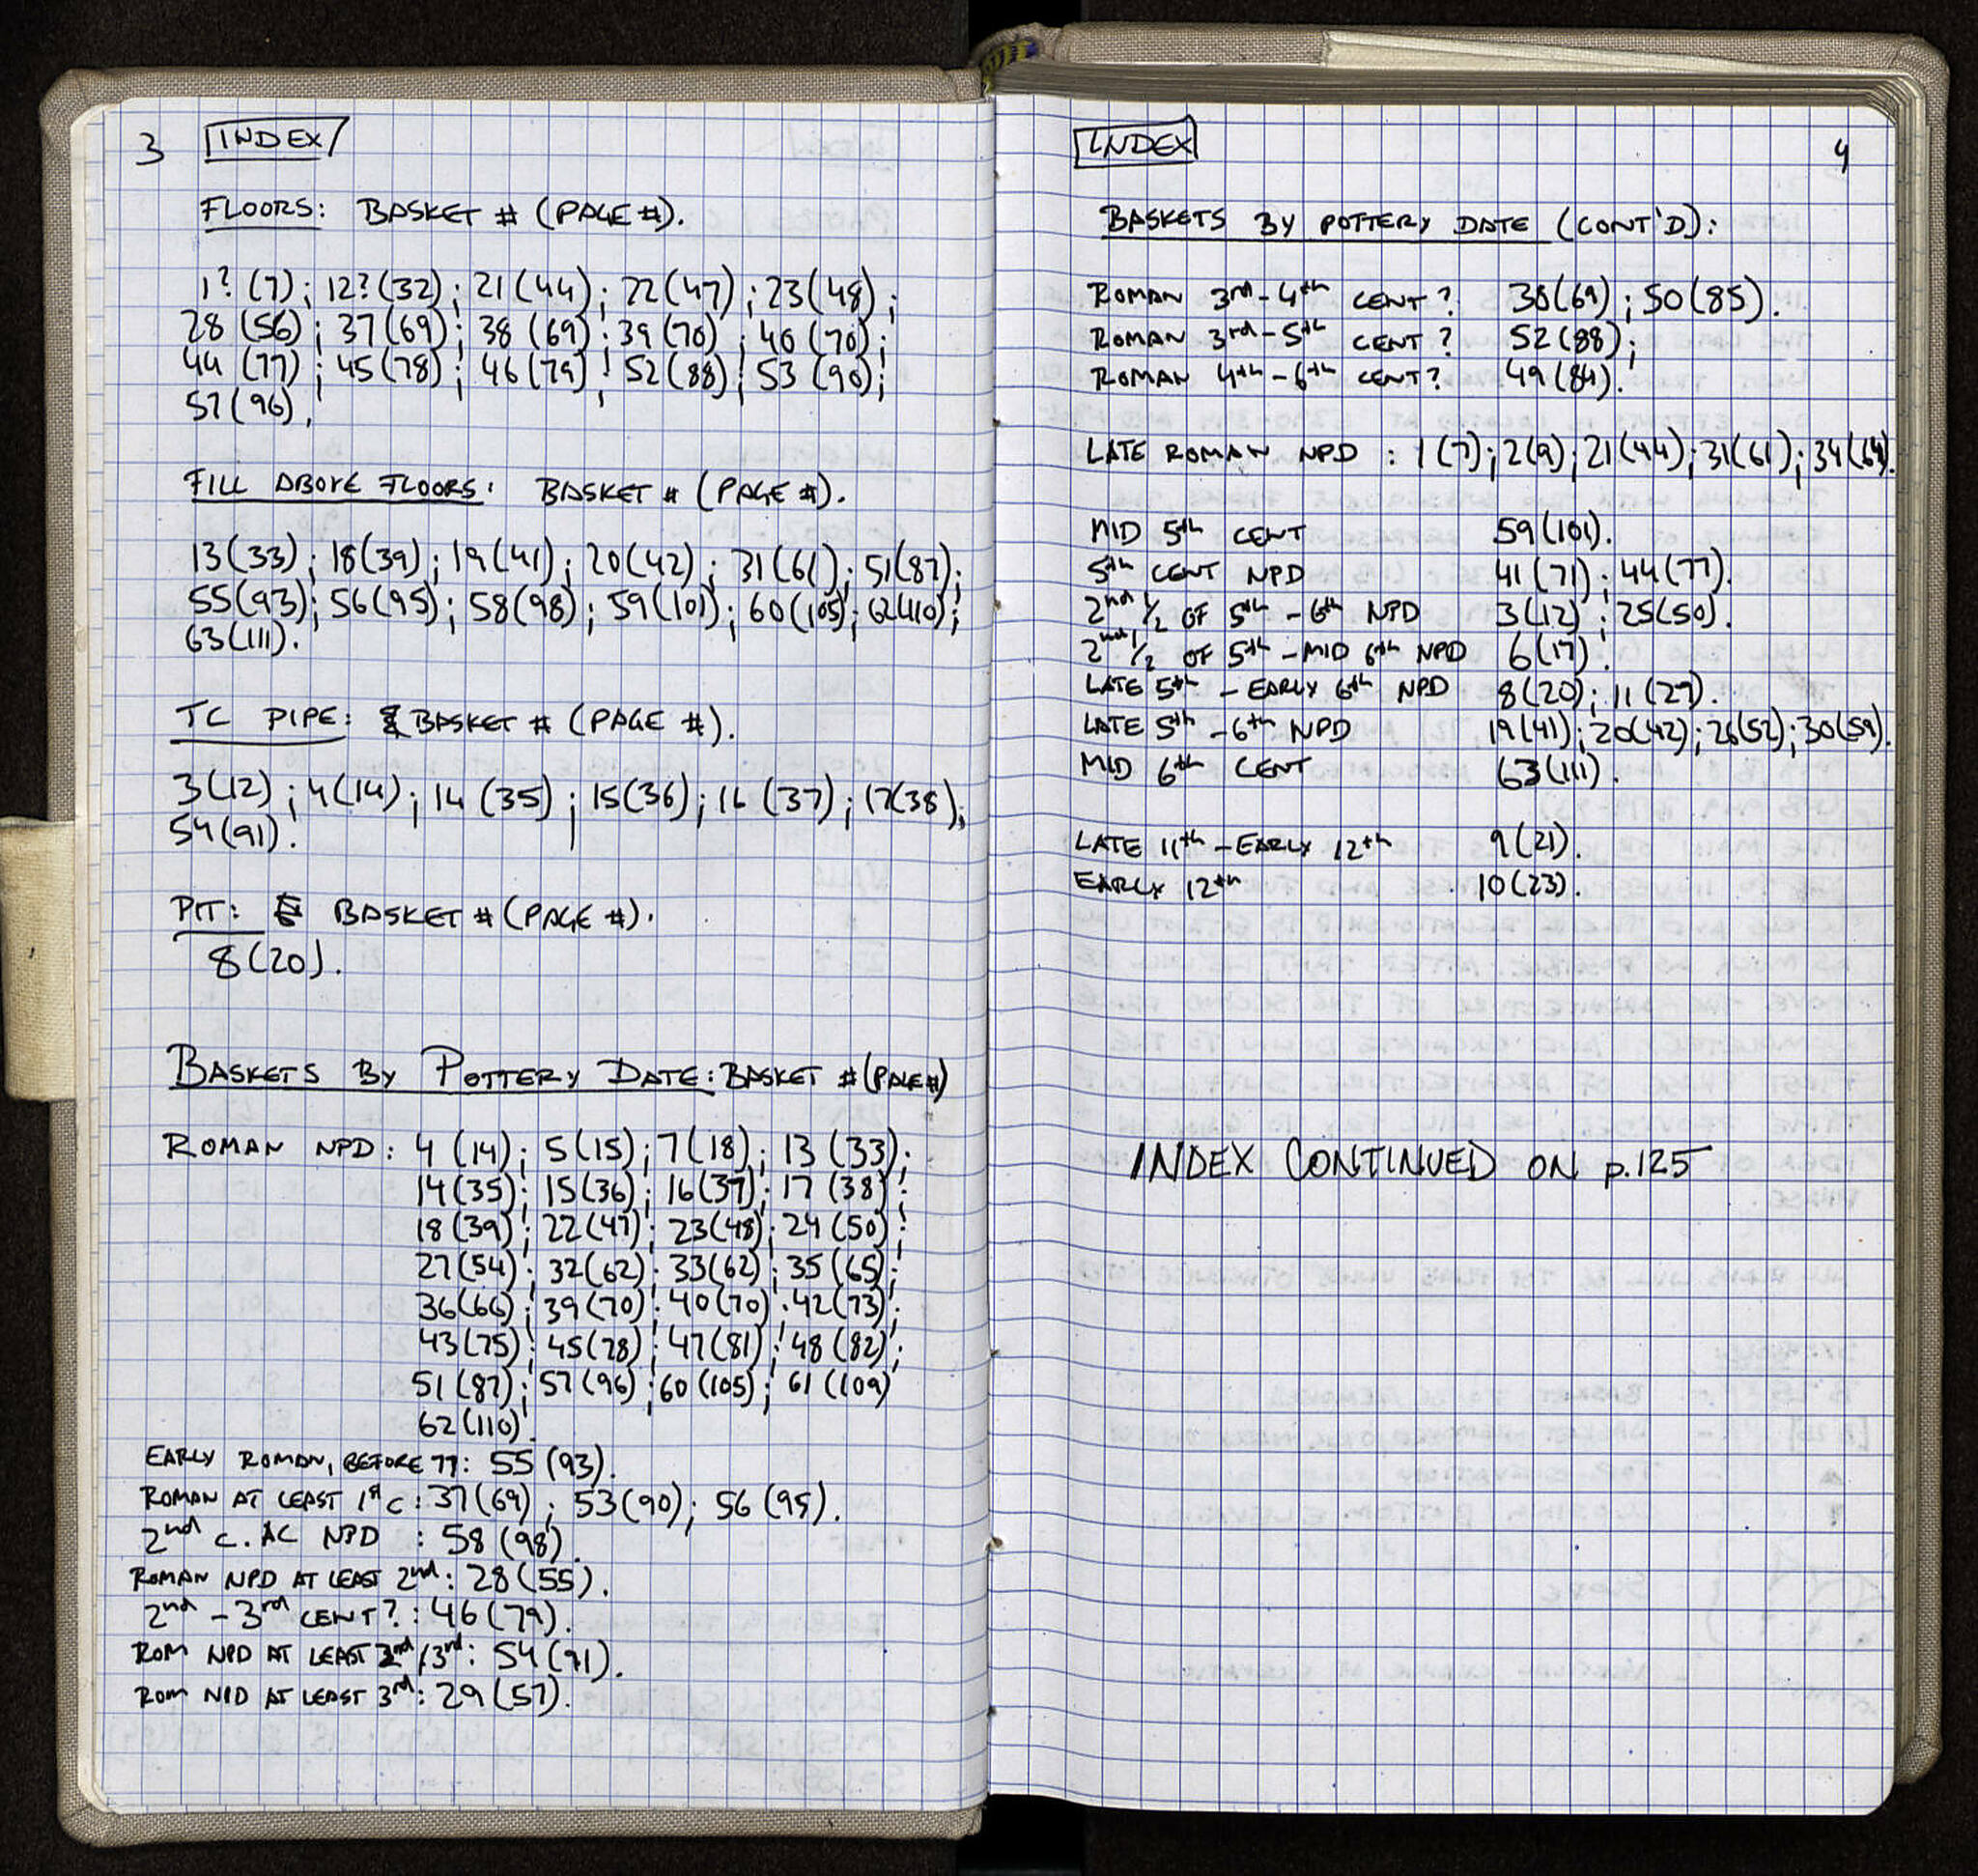 3 INDEX
FLOORS: BASKET # (PAGE #).
1? (7); 12? (32); 21 (44); 22 (47); 23 (48);
28 (56); 37 (69); 38 (69); 39 (70); 40 (70);
44 (77); 45 (78); 46 (79); 52 (88); 53 (90);
57 (96).
FILL ABOVE FLOORS: BASKET # (PAGE #).
13 (33); 18 (39); 19 (41); 20 (42); 31 (61); 51 (87);
55 (93); 56 (95); 58 (98); 59 (101); 60 (105); 62 (110);
63 (111).
TC PIPE: BASKET # (PAGE #).
3 (12); 4 (14); 14 (35); 15 (36); 16 (37); 17 (38);
54 (91).
PIT: BASKET # (PAGE #).
8 (20).
BASKETS BY POTTERY DATE: BASKET # (PAGE #)
ROMAN NPD: 4 (14); 5 (15); 7 (18); 13 (33);
14 (35); 15 (36); 16 (37); 17 (38);
18 (39); 22 (47); 23 (48); 24 (50);
27 (54); 32 (62); 33 (62); 35 (65);
36 (66); 39 (70); 40 (70); 42 (73);
43 (75); 45 (78); 47 (81); 48 (82);
51 (87); 57 (96); 60 (105); 61 (109)
62 (110).
EARLY ROMAN, BEFORE 77: 55 (93).
ROMAN AT LEAST 1st C: 37 (69); 53 (90); 56 (95).
2nd C. AC NPD: 58 (98).
ROMAN NPD AT LEAST 2nd: 28 (55).
2nd - 3rd CENT?: 46 (79).
ROM NPD AT LEAST 2nd/3rd: 54 (91).
ROM NPD AT LEAST 3rd: 29 (57).
INDEX 4
BASKETS BY POTTERY DATE (CONT'D):
ROMAN 3rd - 4th CENT? 38 (69); 50 (85).
ROMAN 3rd - 5th CENT? 52 (88);
ROMAN 4th - 6th CENT? 49 (84).
LATE ROMAN NPD: 1 (7); 2 (9); 21 (44); 31 (61); 34 (64).
MID 5th CENT 59 (101).
5th CENT NPD 41 (71); 44 (77).
2nd 1/2 OF 5th - 6th NPD 3 (12); 25 (50).
2nd 1/2 OF 5th - MID 6th NPD 6 (17).
LATE 5th - EARLY 6th NPD 8 (20); 11 (27).
LATE 5th - 6th NPD 19 (41); 20 (42); 26 (52); 30 (59).
MID 6th CENT 63 (111).
LATE 11th - EARLY 12th 9 (21).
EARLY 12th 10 (23).
INDEX CONTINUED ON p.125